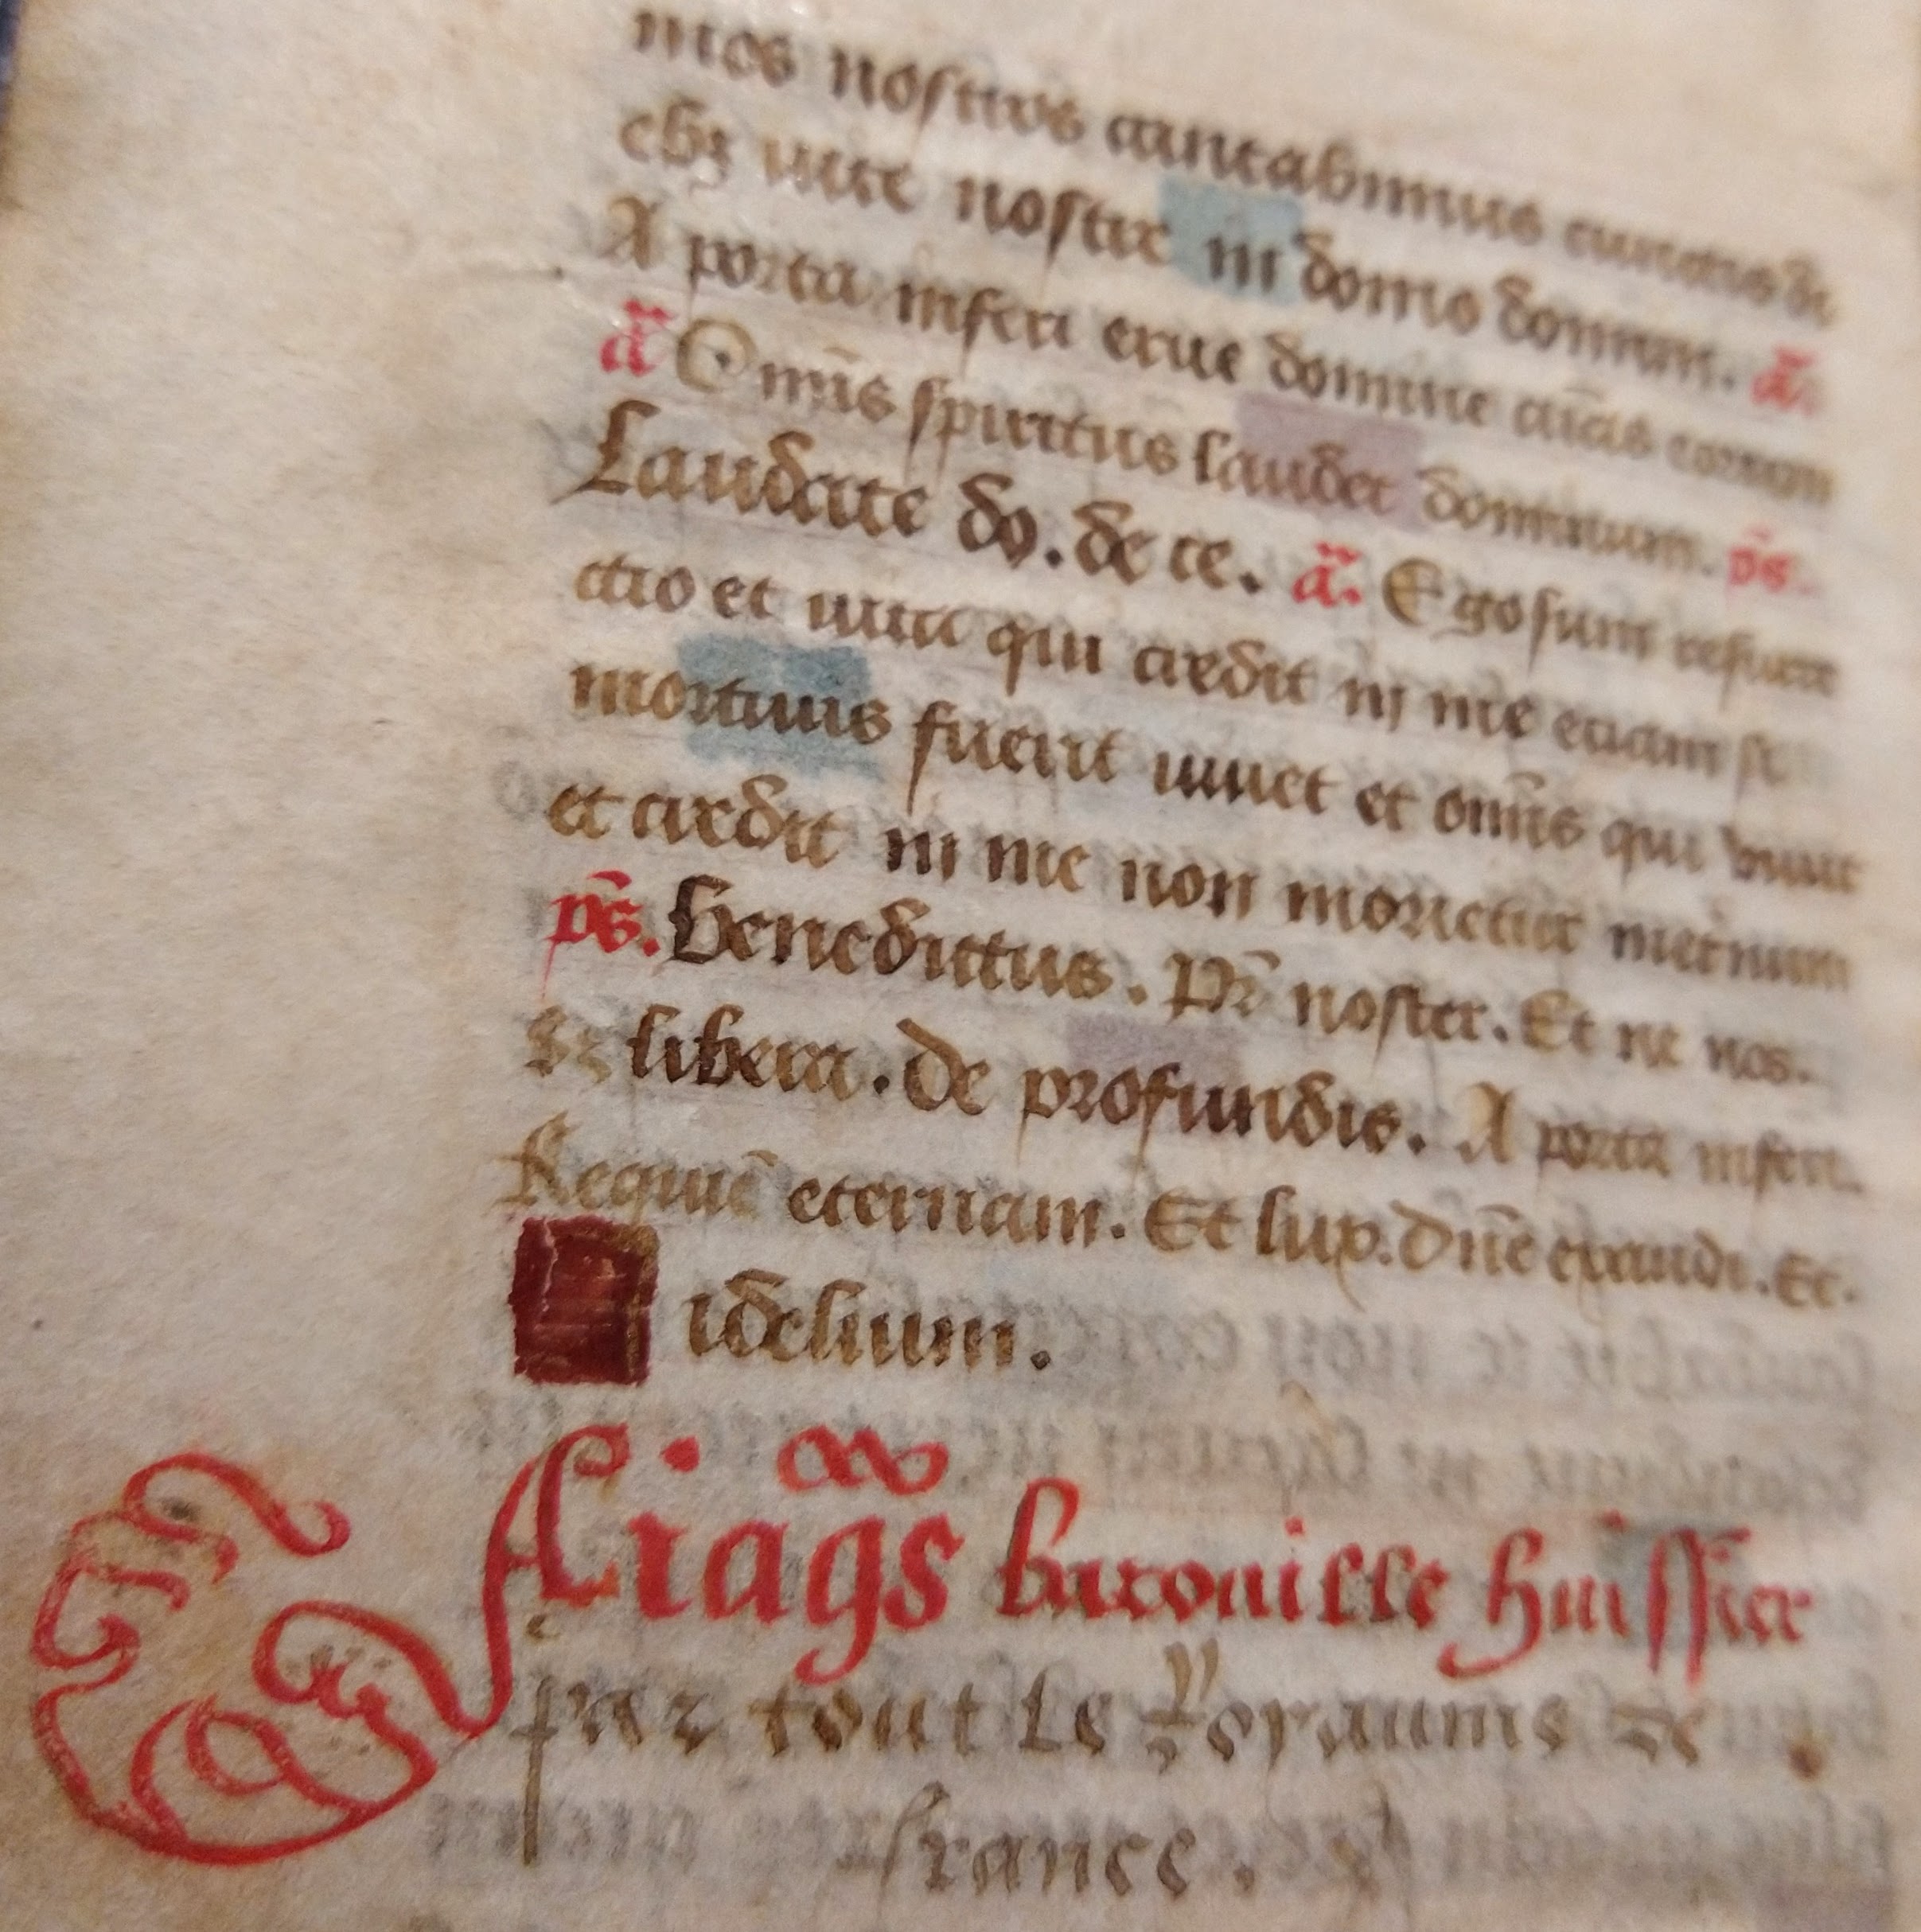 mos nostros cantabimus cunctis di
ebz uite nostre in domo domini. a͞.
A porta inferi erue domine aīas eorum
a͞ Omīs spiritus laudet dominum. p̄s.
Laudate do. de ce. a͞. Ego sum resurre
ctio et uita qui credit in me etiam si
mortuus fuerit uiuet et omīs qui viuit
et credit in me non morietur
p̄s. Benedictus. Pr̄ noster. Et ne nos.
Sz libera. De profundis. A porta inferi.
Requiē eternam. Et lux. Dn̄e exaudi. Et.
idelium.
huissier
par tout le royaume de
france.